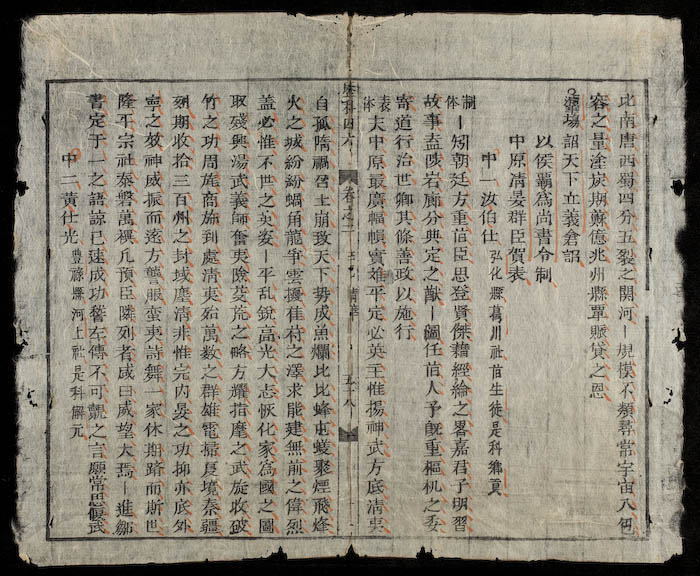 比南唐西蜀四分五裂之関河｜規模不類尋常宇宙八何
容之量塗炭期蘇億兆州縣覃賑貸之恩
弟二塲詔天下立義倉詔
以侯覇為尚書令制
中原清晏群臣賀表
中一汝伯仕弘化縣葛川社信生徒是科鄉貢
制体｜矧朝廷方重信臣思登賢傑藉經綸之畧嘉君子明習
故事盍陟岩廊分典定之猷｜圖任信人予旣重樞机之委
寄道行治世卿其條善政以施行
表体夫中原最廣幅幀實雄平定必英主惟揚神武方底清夷
歷科四六 卷之二 清華 五十八
自孤隋禍啓土崩致天下勢成魚爛比比蜂屯蟻聚煙飛烽
火之城紛紛蝸角龍爭雲擾萑苻之澤求能建無前之偉烈
盖必惟不世之英姿｜平乱銳高光大志恢化家為國之圖
取殘興湯武義師奮夷險芟荒之略方耀指麾之武旋收破
竹之功周旄商施到處清夷殆萬数之群雄電掃夏境秦疆
刻期收拾三百州之封域塵清非惟完内晏之功抑亦底外
寧之效神威振而逐方讋服蛮夷詩舞一家休期路而斯世
隆平宗社泰磐萬禩几預臣隣列者咸曰威望大焉｜進鄒
書定于一之語諒已速成功誊左傳不可黷之言願常思偃武
中二黃仕光豊祿縣河上社是科解元